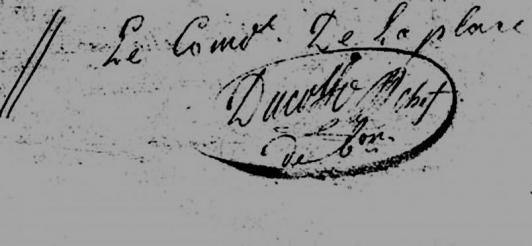 Le Comdt. De La place
Ducosso chef
de bon.